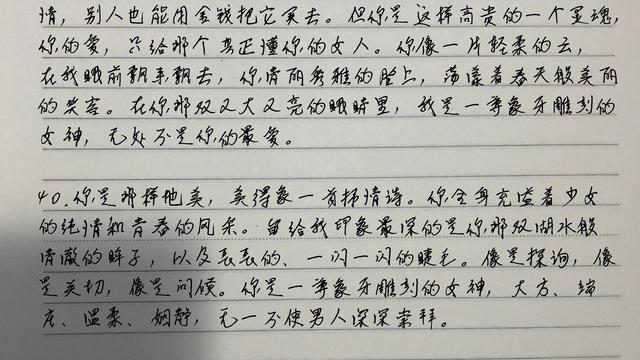 情，别人也能用金钱把它买去。但你是这样高贵的一个灵魂，
你的爱，只给那个真正懂你的女人。你像一片轻柔的云，
在我眼前飘来飘去，你清丽秀雅的脸上，荡漾着春天般美丽
的笑容。在你那双又大又亮的眼眸里，我是一尊象牙雕刻的
女神，无处不是你的最爱。
40.你是那样地美，美得象一首抒情诗。你全身充溢着少女
的纯情和青春的风采。留给我印象最深的是你那双湖水般
清澈的眸子，以及长长的、一闪一闪的睫毛。像是探询，像
是关切，像是问候。你是一尊象牙雕刻的女神，大方、端
庄、温柔、娴静，无一不使男人深深崇拜。